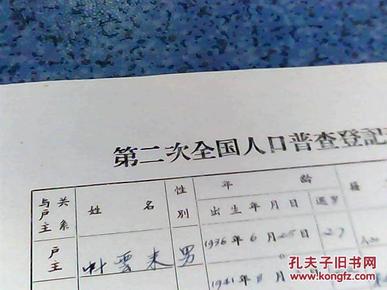 第二次全国人口普查登記
与户主关系 姓 名 性別 年 齡
出生年月日 週岁
户主 叶雲来 男 1936年6月25日 27
1941年 月 日
孔夫子旧书网